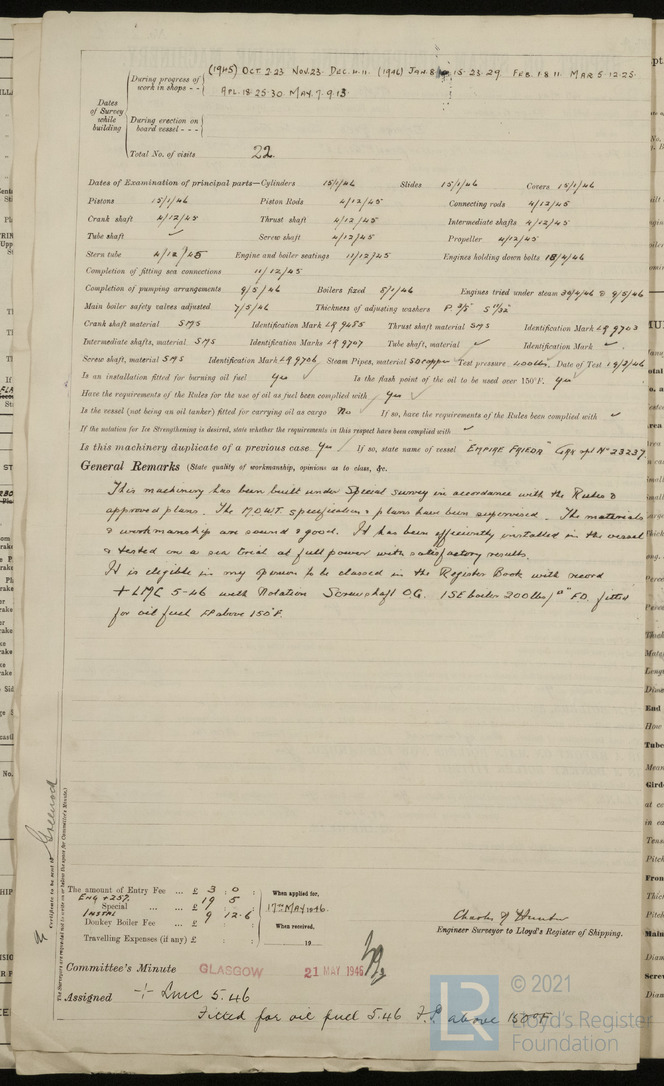 (1945) OCT. 2.23 NOV.23. DEC. 4.11. (1946) JAN. 8. 15. 23. 29 FEB. 1.8.11. MAR 5.12.25.
During progress of work in shops - -
APL. 18.25.30 MAY. 7.9.13.
Dates of Survey while building
During erection on board vessel - - -
Total No. of visits 22.
Dates of Examination of principal parts—Cylinders 15/1/46 Slides 15/1/46 Covers 15/1/46
Pistons 15/1/46 Piston Rods 4/12/45 Connecting rods 4/12/45
Crank shaft 4/12/45 Thrust shaft 4/12/45 Intermediate shafts 4/12/45
Tube shaft ✓ Screw shaft 4/12/45 Propeller 4/12/45
Stern tube 4/12/45 Engine and boiler seatings 11/12/45 Engines holding down bolts 18/4/46
Completion of fitting sea connections 11/12/45
Completion of pumping arrangements 9/5/46 Boilers fixed 5/1/46 Engines tried under steam 30/4/46 & 9/5/46
Main boiler safety valves adjusted 7/5/46 Thickness of adjusting washers P. 3/8" S 11/32"
Crank shaft material SMS Identification Mark LR 9485 Thrust shaft material SMS Identification Mark LR 9703
Intermediate shafts, material SMS Identification Marks LR 9707 Tube shaft, material ✓ Identification Mark ✓
Screw shaft, material SMS Identification Mark LR 9706 Steam Pipes, material SD copper Test pressure 400 lbs. Date of Test 19/3/46
Is an installation fitted for burning oil fuel Yes ✓ Is the flash point of the oil to be used over 150°F. Yes ✓
Have the requirements of the Rules for the use of oil as fuel been complied with Yes ✓
Is the vessel (not being an oil tanker) fitted for carrying oil as cargo No ✓ If so, have the requirements of the Rules been complied with ✓
If the notation for Ice Strengthening is desired, state whether the requirements in this respect have been complied with ✓
Is this machinery duplicate of a previous case Yes ✓ If so, state name of vessel "EMPIRE FRIEDA" Grk rpt No 23237
General Remarks (State quality of workmanship, opinions as to class, &c.
This machinery has been built under Special survey in accordance with the Rules &
approved plans. The M.O.W.T. specifications & plans have been supervised. The materials
& workmanship are sound & good. It has been efficiently installed in the vessel
& tested on a sea trial at full power with satisfactory results.
It is eligible in my opinion to be classed in the Register Book with record
+ LMC 5-46 with Notation Screwshaft OG. 1SE boiler 200 lbs/□" FD. fitted
for oil fuel FP above 150°F.
Certificate to be sent to Greenock
(The Surveyors are requested not to write on or below the space for Committee's Minute.)
The amount of Entry Fee ... £ 3 : 0 :
ENG + 25%
Special ... ... £ 19 : 5 :
INSTAL
Donkey Boiler Fee ... £ 9 : 12.6 :
Travelling Expenses (if any) £ : :
When applied for,
17TH MAY 1946.
When received,
19
Engineer Surveyor to Lloyd's Register of Shipping.
Committee's Minute GLASGOW 21 MAY 1946
Assigned + LMC 5.46
Fitted for oil fuel 5.46 F.P. above 150°F
© 2021
Lloyd's Register
Foundation
LR